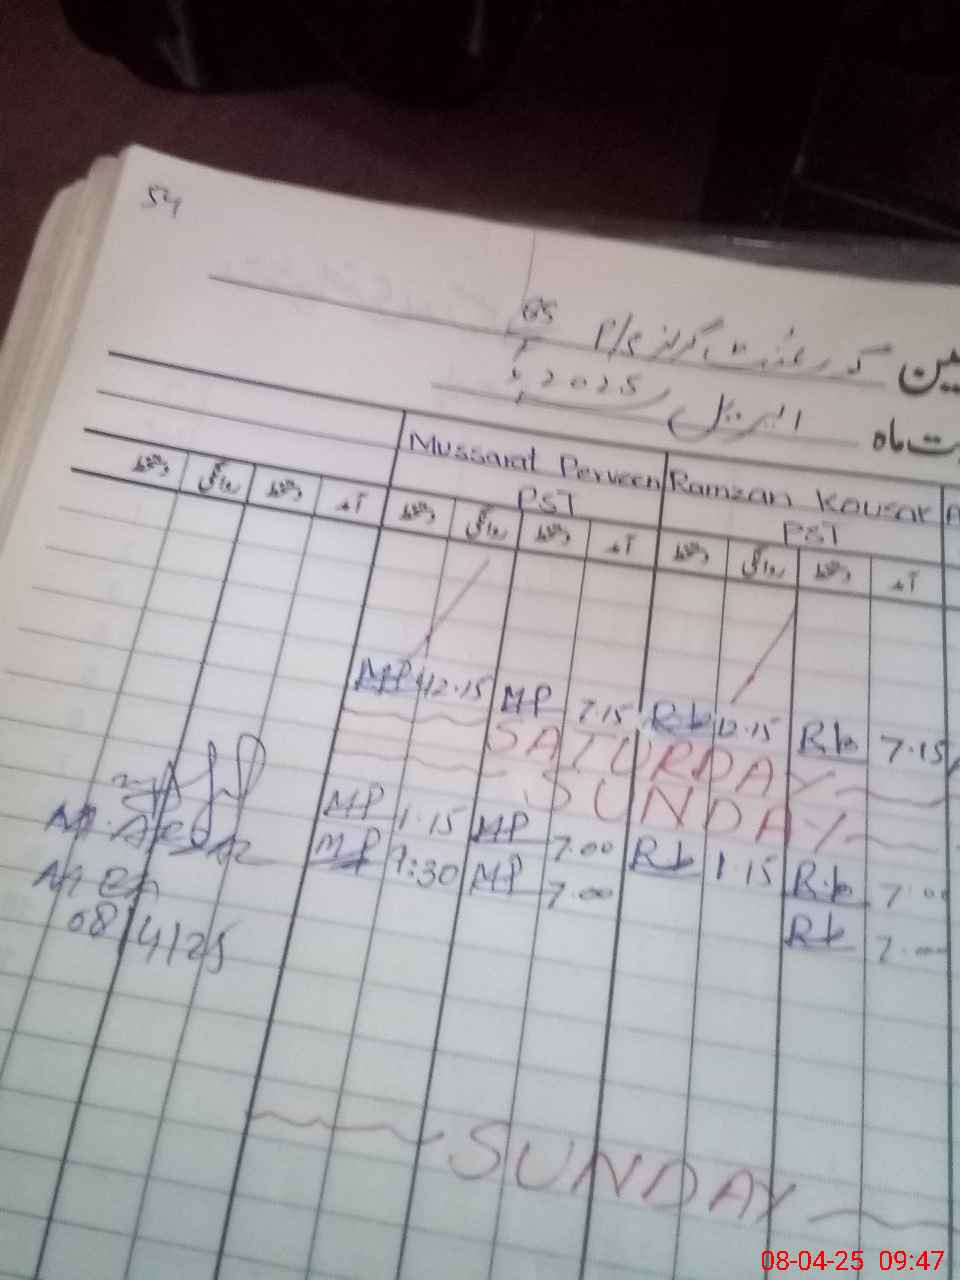 54
گورنمنٹ گرلز P/S
اپریل 2025
ت ماہ
Mussarat Perveen Ramzan Kousar
PST PST
آمد دستخط روانگی دستخط آمد دستخط روانگی دستخط آمد دستخط روانگی دستخط
MP 12.15 MP 7.15 Rk 12.15 Rk 7.15
SATURDAY
SUNDAY
MP 1.15 MP 7.00 Rk 1.15 Rk 7.00
MP 9:30 MP 7.00 Rk 7.00
MEA
08/4/25
SUNDAY
08-04-25 09:47